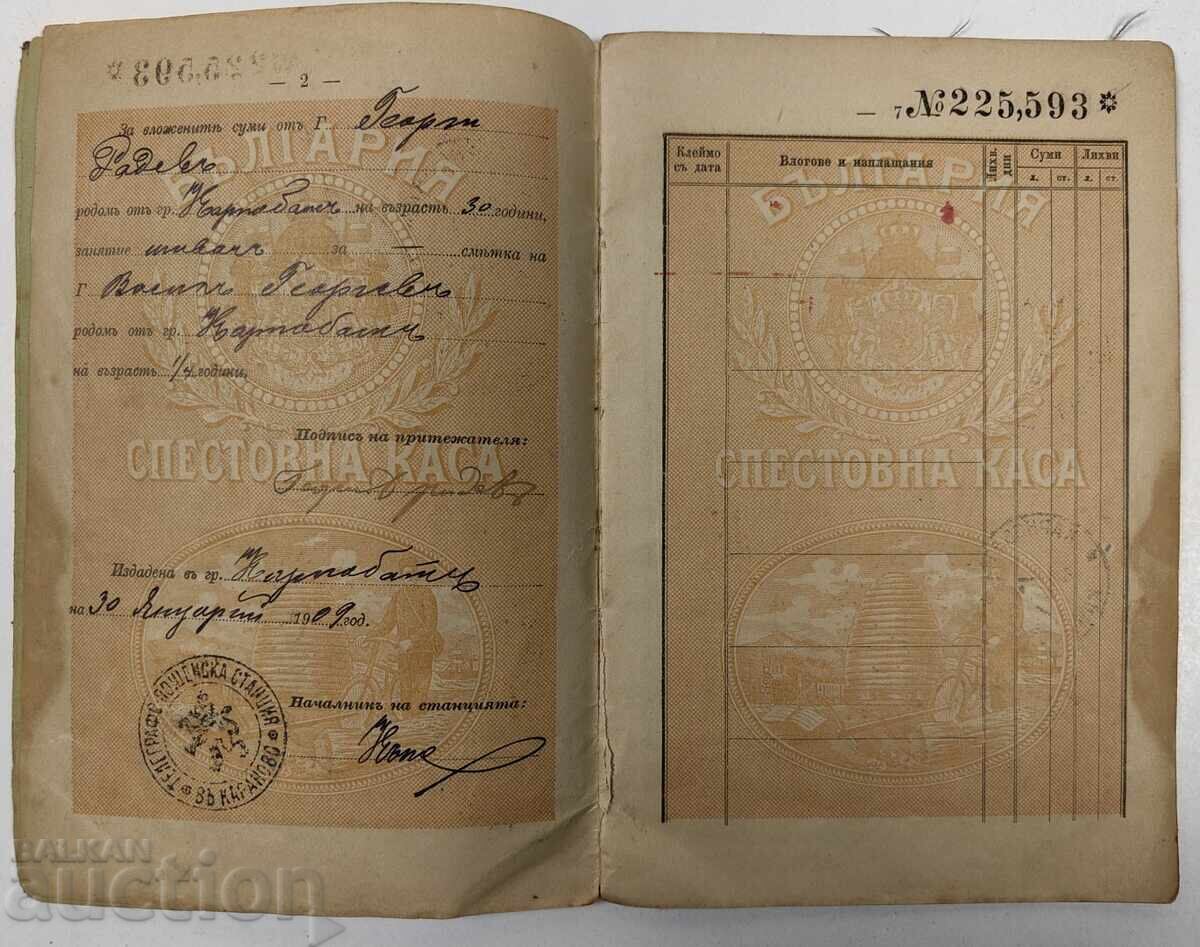 — 2 —
За вложенитѣ суми отъ Г. Георги
Радевъ
родомъ отъ гр. Карнобатъ на възрасть 30 години,
занятие шивачъ за — смѣтка на
Г Василъ Георгевъ
родомъ отъ гр. Карнобатъ
на възрасть 1/4 години,
Подписъ на притежателя:
Издадена въ гр. Карнобатъ
на 30 Януарий 1909 год.
Началникъ на станцията:
ТЕЛЕГРАФО-ПОЩЕНСКА СТАНЦИЯ
ВЪ КАРАНОВО
БЪЛГАРИЯ
СПЕСТОВНА КАСА
BALKAN
auction
— 7 №225,593
Клеймо съ дата
Влогове и изплащания
Лихв. дни
Суми
Лихви
л. ст. л. ст.
БЪЛГАРИЯ
СПЕСТОВНА КАСА